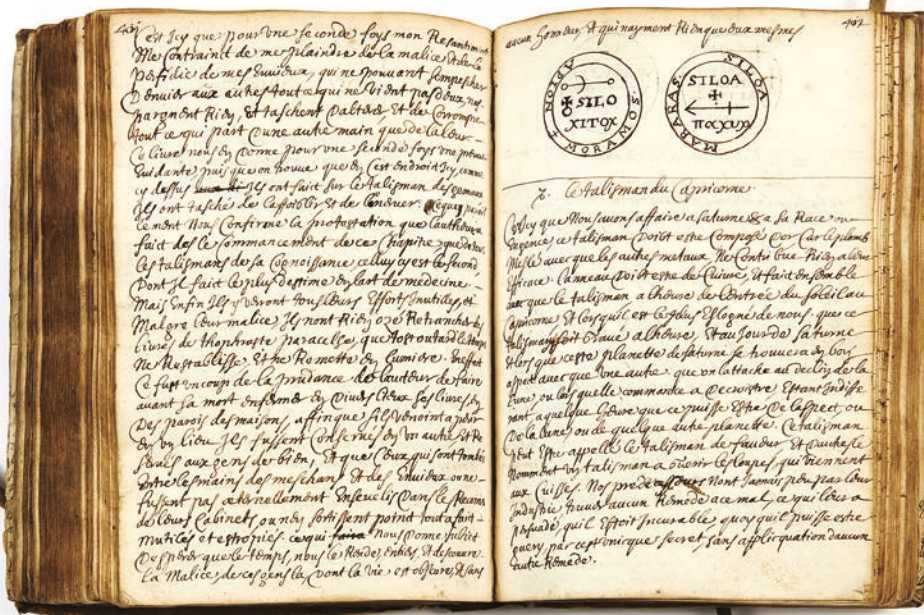 401
C'est Icy que pour une seconde foys mon Resantiment
Me Contrainct de me plaindre de la malice et de la
perfidie de mes Envieux, qui ne pouvant sempescher
D'envier aux autres tout ce qui ne vient pas deux, nes-
pargnent Rien, Et taschent Dalterer, Et de Corrompre
tout ce qui part d'une autre main que de la leur
Ce livre nous en Donne pour une seconde foys une preuve
Evidante puis que on trouve que en Cest endroit Icy, comme
cy dessus Ils ont fait sur le talisman des gemeaux
Ils ont tasché de laffoiblir et de lenerver
cement Nous Confirme la protestation que lautheur a
fait des le Commancement de ce Chapitre, que de tous
les talismans de sa Connoissance celluy cy est le second
Dont Il fait le plus destime en lart de medecine.
Mais Enfin Ils y verront tous leurs Efforts Inutiles, et
Malgre leur malice, Ils nont Rien ozé Retrancher des
livres de théophraste paracelse, que tost ou tard le temps
Ne Restablisse Et ne Remette en lumiere. En effet
Ce fust un coup de la prudance de lauteur de faire
avant sa mort enfermer en Divers lieux ses livres, en
Des parois des maisons, affin que sils venoint a perir
en un lieu Ils fussent Conservés en un autre Et Re
servés aux gens de bien, Et que Ceux qui sont tombés
Entre les mains des meschans Et des Envieux ou ne
fussent pas eternellement Ensevelis Dans le
de leurs Cabinets ou nen sortissent point tout a fait
mutiles et estropies. ce qui Nous donne subiet
Desperer que le temps, nous les Rende, entiers, Et descouvre
La Malice, de ces gens la, Dont la vie est obscure, Et sans
402
aucun honneur, Et qui nayment Rien que eux mesmes
APION
MORAMOS.
SILO
XITOX
SILOA
MARARAS.
SILOA
ΠΑΧΙΥΧ
3. Le talisman du Capricorne
Icy que Nous avons affaire a saturne & a sa Race ou
Engence, ce talisman Doibt estre Composé Dor Car le plomb
Meslé avec que les autres metaux Ne Contribue Rien a leur
Efficace. Lanneau Doibt estre de Cuivre, Et fait ensemble
avec que le talisman a lheure de lentrée du soleil au
Capricorne Et lorsquil est le plus Esloigné de nous. que ce
talisman soit Gravé a lheure, Et au Jour de saturne
Et lors que ceste planette de saturne se trouvera en bon
aspect avec que une autre. que on lattache au declin de la
lune, ou lors quelle commance a Decroistre, Estant Indiffe
rant a quelque heure que ce puisse Estre De laspect, ou
De la lune, ou de quelque autre planette. Ce talisman
peut Estre appellé le talisman de faveur Et
Nomment un talisman a Guerir les loupes, qui viennent
aux Cuisses. Nos predecesseurs Nont Jamais peu par leur
Industrie trouver aucun Remede a ce mal, ce qui leur a
persuadé, quil Estoit Incurable, quoy quil puisse estre
guery, par cest unicque secret, sans applicquation daucun
autre Remede.